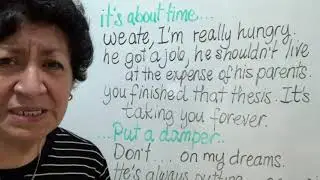 it's about time...
we ate, I'm really hungry.
he got a job, he shouldn't live
at the expense of his parents.
you finished that thesis. It's
taking you forever.
...Put a damper..
Don't ... on my dreams.
He's always putting